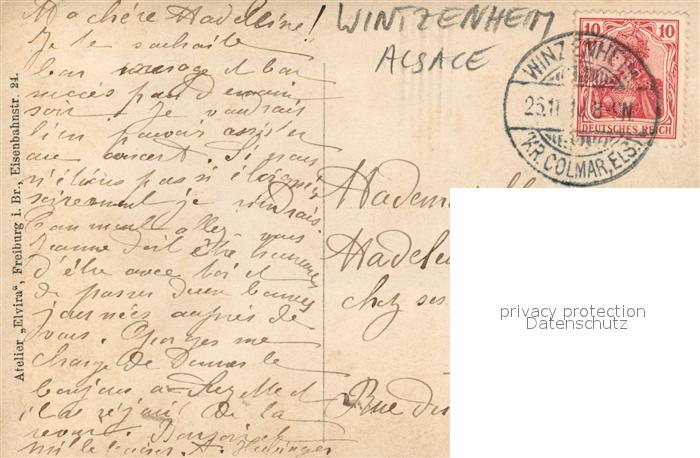 Ma chère Madeleine!
Je te souhaite
bon courage et bon
succès pour demain
soir. Je voudrais
bien pouvoir assister
au concert. Si nous
n'étions pas si éloignés
sûrement je viendrais.
Comment allez-vous
Jeanne doit être heureuse
d'être avec toi et
de passer deux bonnes
journées auprès de
vous. Georges me
charge de Donner le
bonjour a Suzette et
il se réjouit de la
revoir. Bonsoir et
mille baisers. A.
WINTZENHEIM
ALSACE
10 10
DEUTSCHES REICH
WINZENHEIM
25.11. 8-9N
KR. COLMAR, ELS.
Atelier „Elvira", Freiburg i. Br., Eisenbahnstr. 24.
Madem
Madele
chez ses
Rue du
privacy protection
Datenschutz